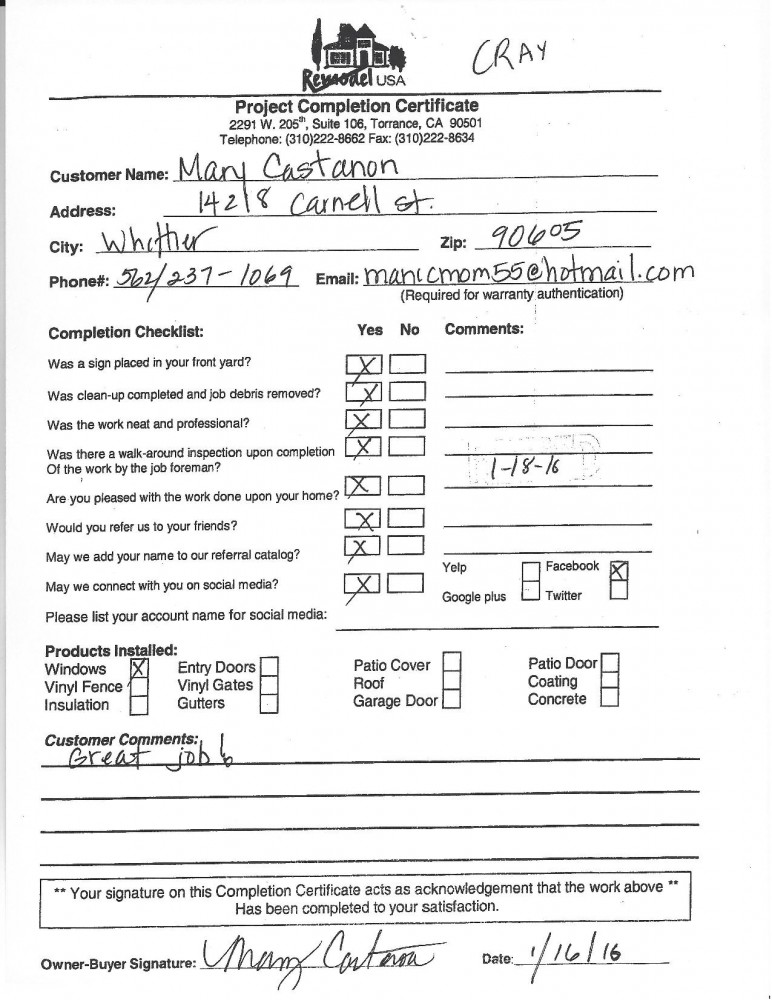 CRAY
Remodel USA
Project Completion Certificate
2291 W. 205th, Suite 106, Torrance, CA 90501
Telephone: (310)222-8662 Fax: (310)222-8634
Customer Name: Mary Castanon
Address: 14218 Carnell st.
City: Whittier Zip: 90605
Phone#: 562/237-1069 Email: manicmom55@hotmail.com
(Required for warranty authentication)
Completion Checklist: Yes No Comments:
Was a sign placed in your front yard? X
Was clean-up completed and job debris removed? X
Was the work neat and professional? X
Was there a walk-around inspection upon completion X
Of the work by the job foreman? 1-18-16
Are you pleased with the work done upon your home? X
Would you refer us to your friends? X
May we add your name to our referral catalog? X
Yelp Facebook X
May we connect with you on social media? X
Google plus Twitter
Please list your account name for social media:
Products Installed:
Windows X Entry Doors Patio Cover Patio Door
Vinyl Fence Vinyl Gates Roof Coating
Insulation Gutters Garage Door Concrete
Customer Comments:
Great job!
** Your signature on this Completion Certificate acts as acknowledgement that the work above **
Has been completed to your satisfaction.
Owner-Buyer Signature: Mary Castanon Date: 1/16/16